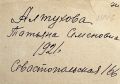 Алтухова
Татьяна Семеновна
1921
Севастопольская 1/66